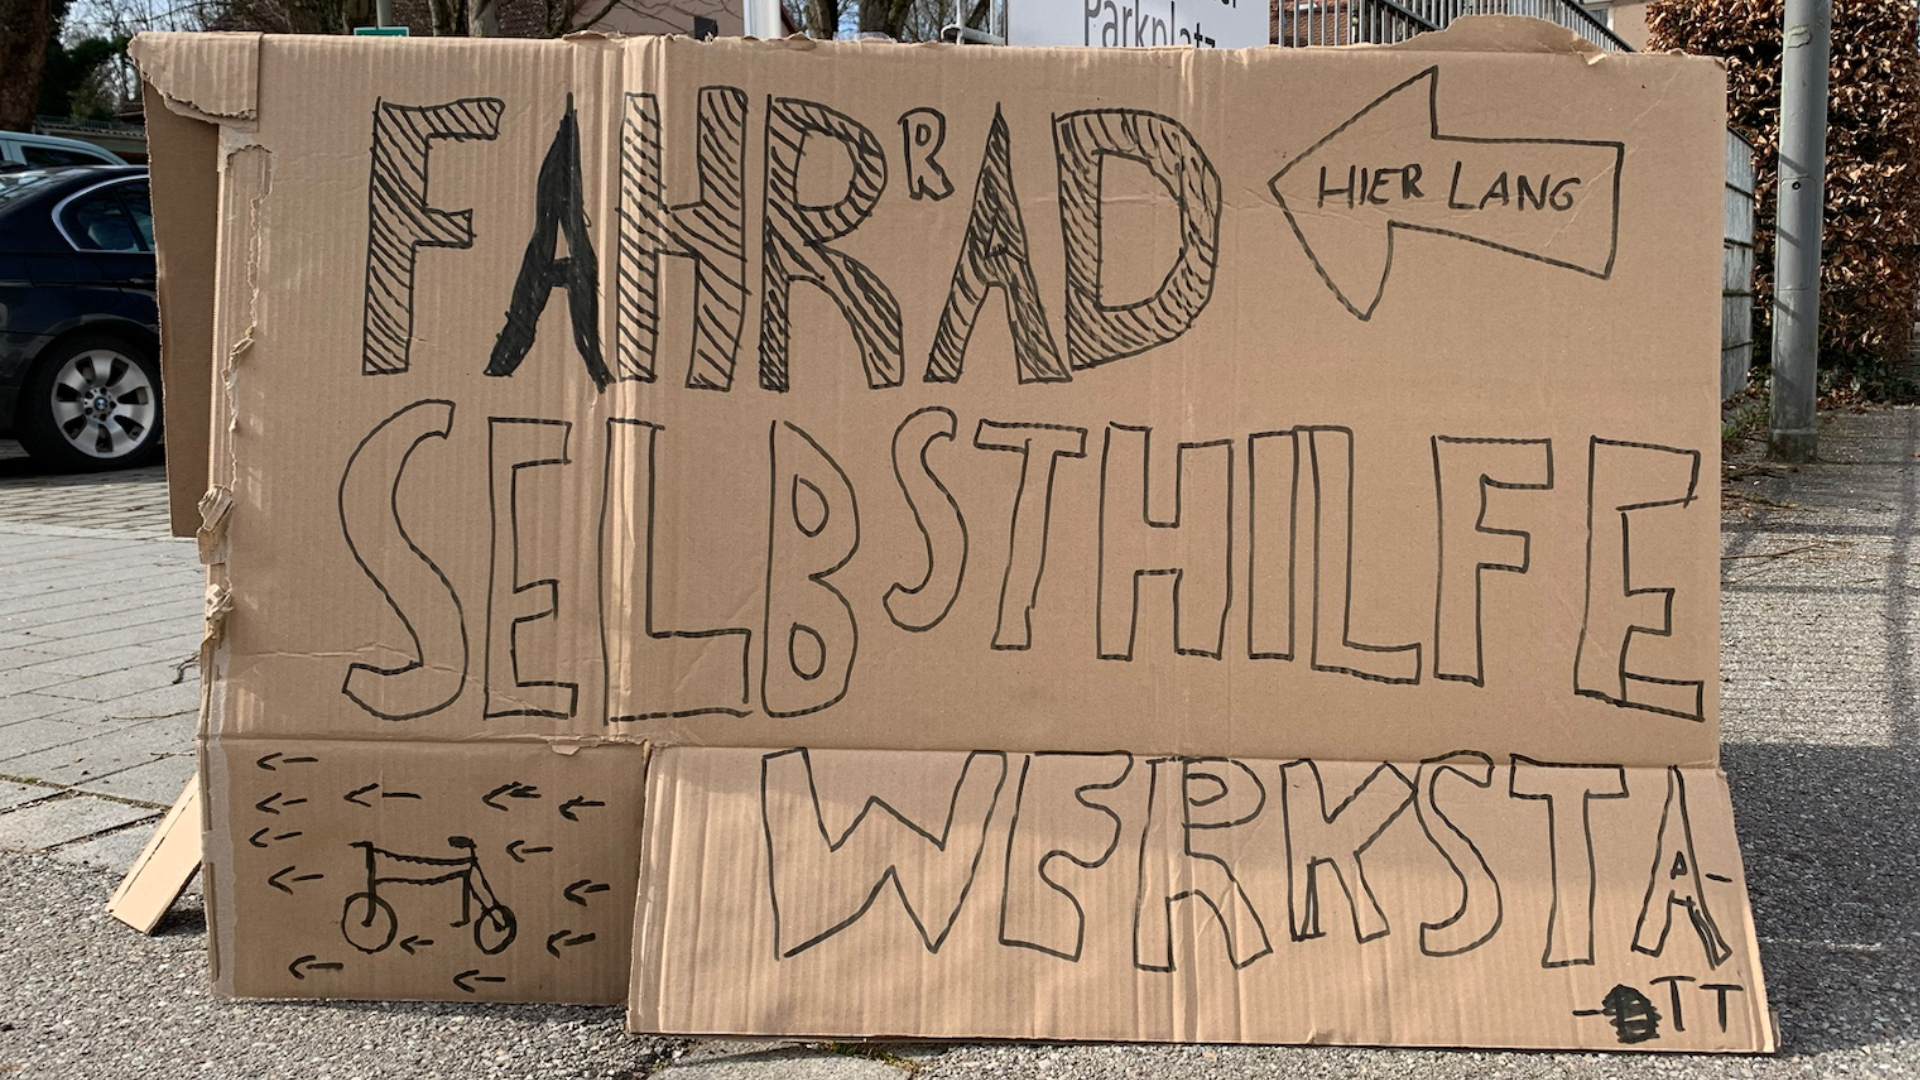 Parkplatz
FAHRRAD
HIER LANG
SELBSTHILFE
WERKSTA-
-TT